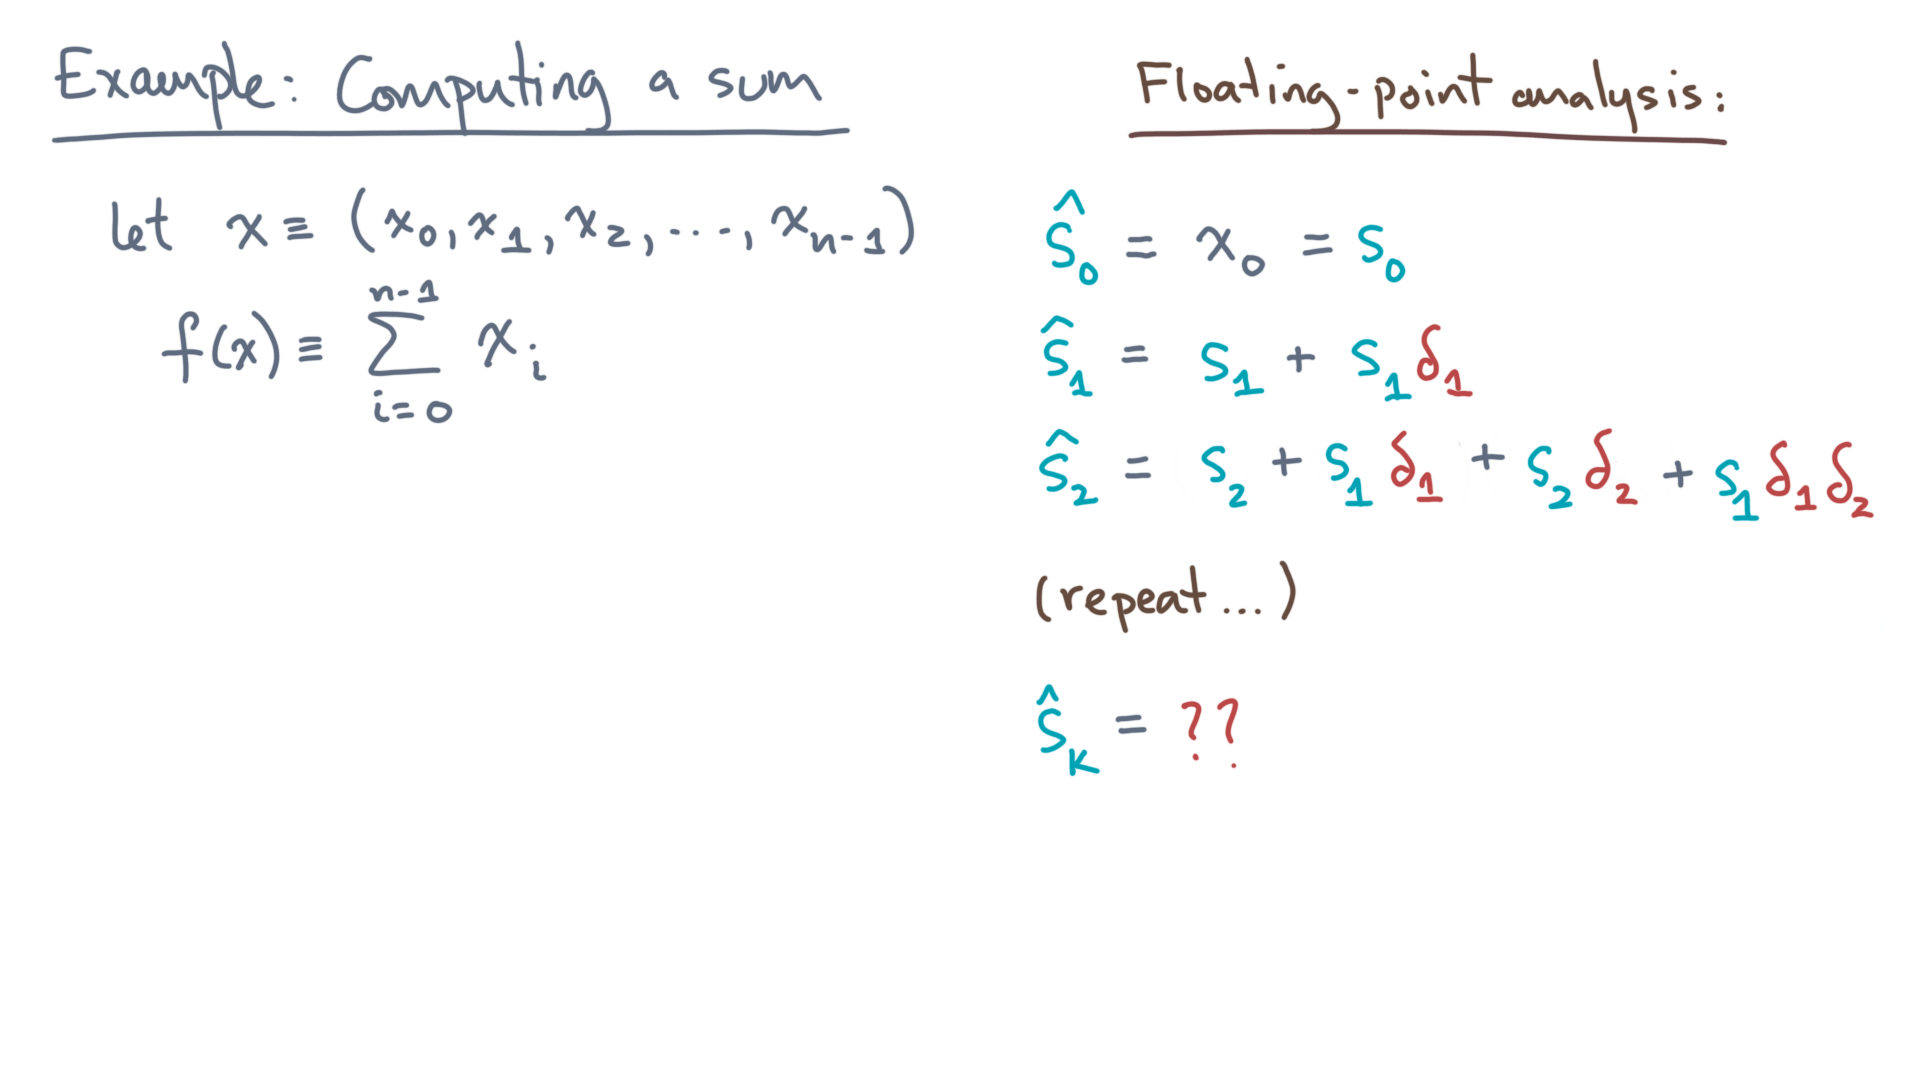 Example: Computing a sum
let x ≡ (x₀, x₁, x₂, ..., xₙ₋₁)
n-1
f(x) ≡ ∑ xᵢ
i=0
Floating-point analysis:
ŝ₀ = x₀ = s₀
ŝ₁ = s₁ + s₁δ₁
ŝ₂ = s₂ + s₁δ₁ + s₂δ₂ + s₁δ₁δ₂
(repeat...)
ŝₖ = ??